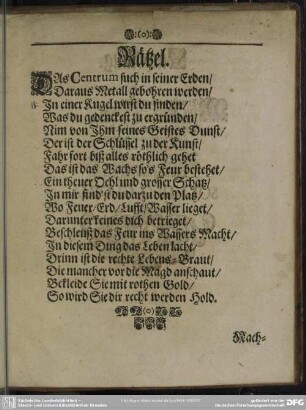 Rätzel.
DAs Centrum such in seiner Erden/
Daraus Metall gebohren werden/
In einer Kugel wirst du finden/
Was du gedenckest zu ergründen/
Nim von Ihm seines Geistes Dunst/
Der ist der Schlüssel zu der Kunst/
Fahr fort biß alles röthlich gehet
Das ist das Wachs so's Feur bestehet/
Ein theuer Oehl und grosser Schatz/
In mir find'st du darzu den Platz/
Wo Feuer/Erd/Lufft/Wasser lieget/
Darunter keines dich betrieget/
Beschleiß das Feur ins Wassers Macht/
In diesem Ding das Leben lacht/
Drinn ist die rechte Lebens-Braut/
Die mancher vor die Magd anschaut/
Bekleide Sie mit rothen Gold/
So wird Sie dir recht werden Hold.
Nach-